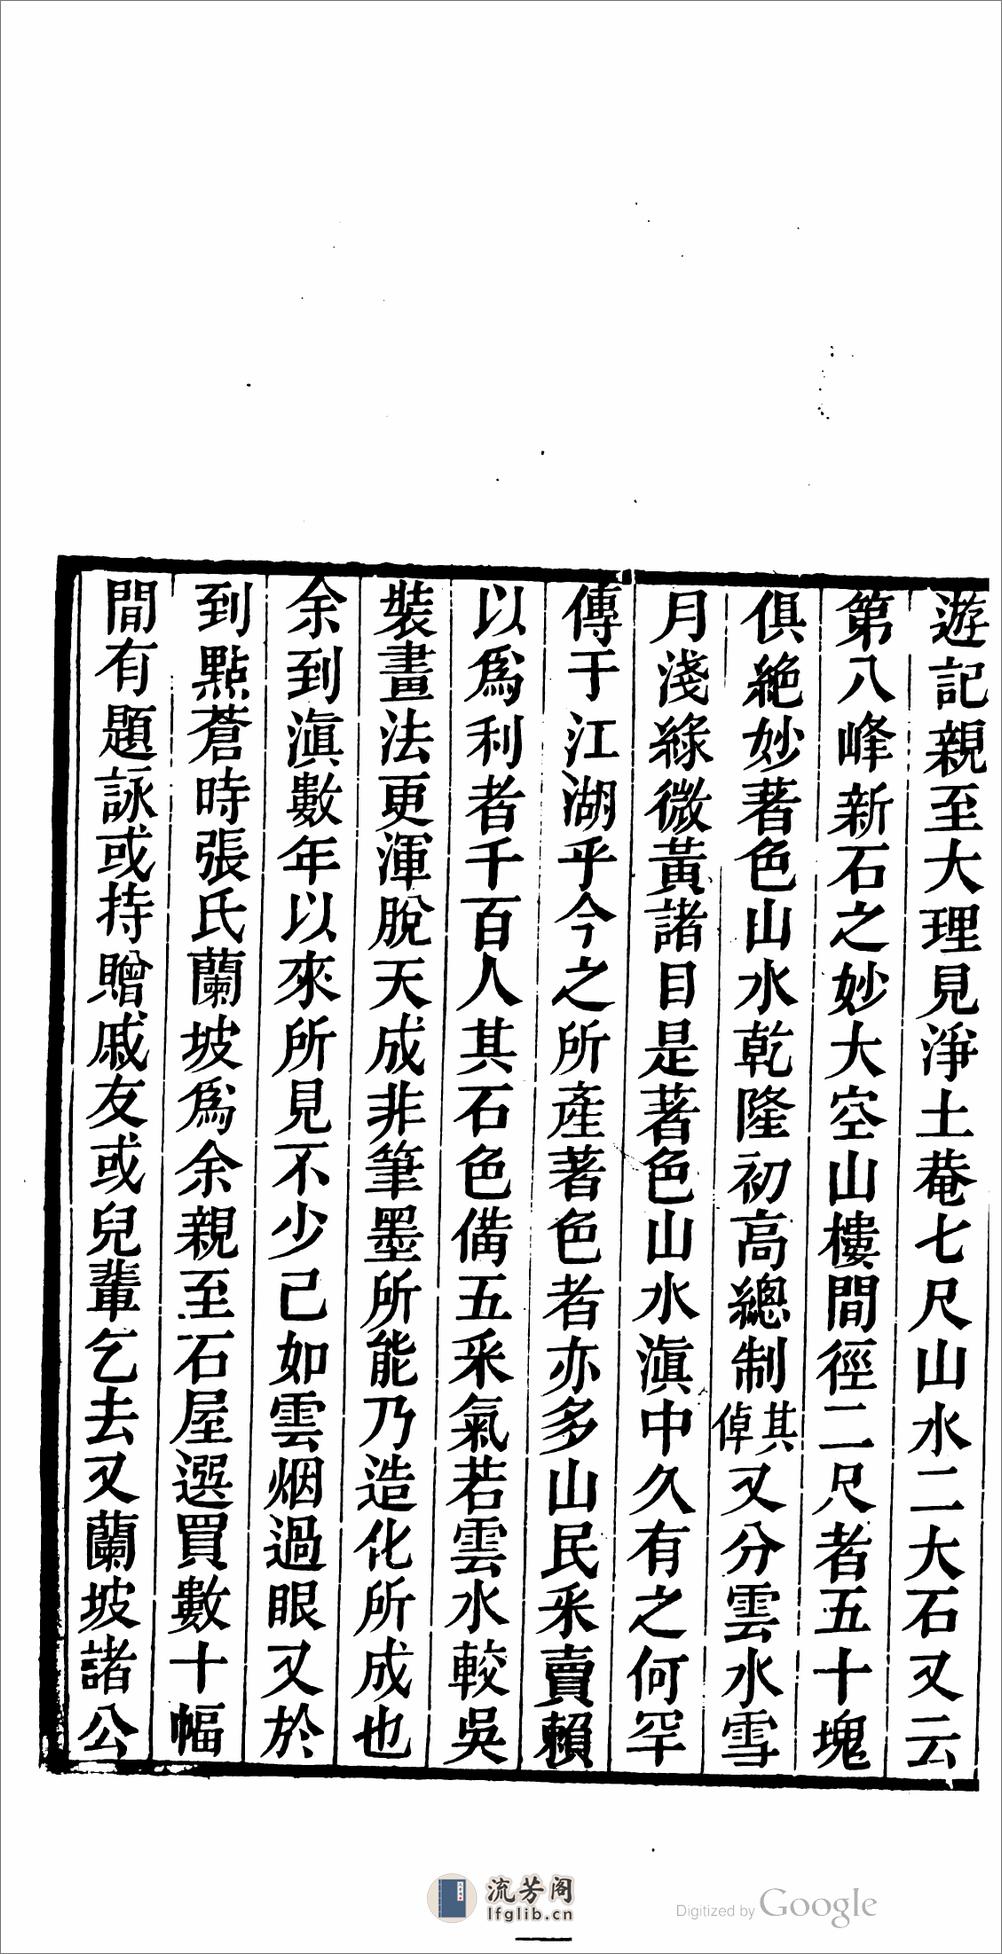 遊記親至大理見淨土菴七尺山水二大石又云
第八峰新石之妙大空山樓間徑二尺者五十塊
俱絶妙著色山水乾隆初高總制其倬又分雲水雪
月淺綠微黃諸目是著色山水滇中久有之何罕
傳于江湖乎今之所產著色者亦多山民采賣賴
以爲利者千百人其石色備五采氣若雲水較吳
裝畫法更渾脫天成非筆墨所能乃造化所成也
余到滇數年以來所見不少已如雲烟過眼又於
到點蒼時張氏蘭坡爲余親至石屋選買數十幅
間有題詠或持贈戚友或兒輩乞去又蘭坡諸公
流芳阁
lfglib.cn
Digitized by Google